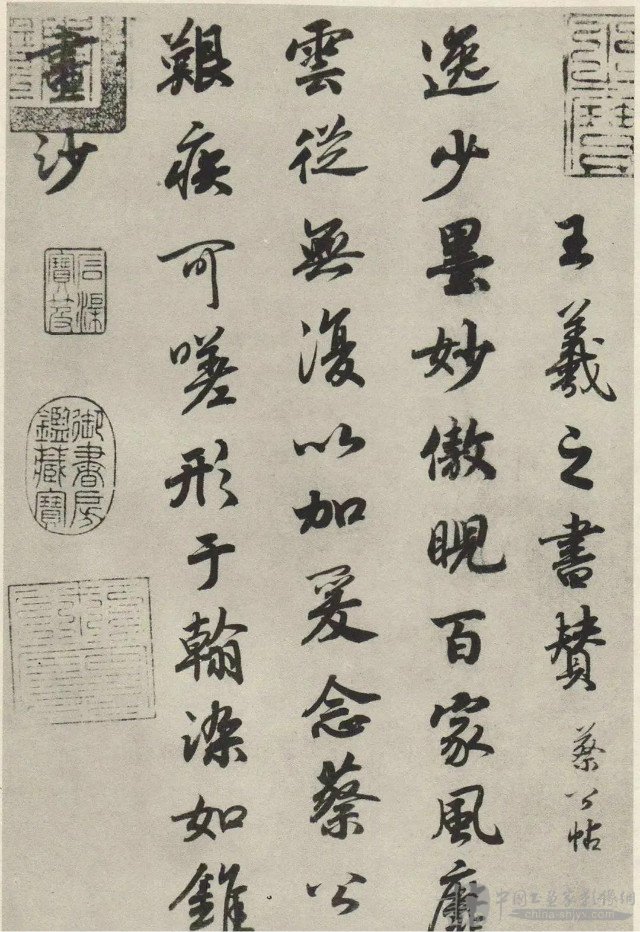 王羲之書賛 蔡公帖
逸少墨妙傲睨百家風靡
雲從無復以加爰念蔡公
艱疾可嗟形于翰染如錐
畫沙
御書房鑑藏寶
中国书画家影像網
china-shjyx.com